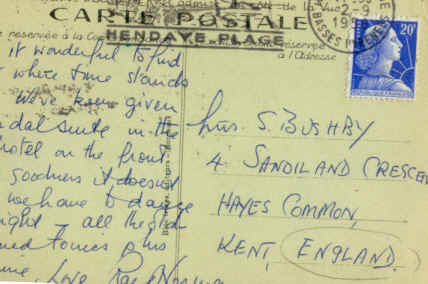 CARTE POSTALE
HENDAYE-PLAGE
réservée à l'Adresse
BASSES PYRENEES
20F
it wonderful to find
where time stands
We've been given
dal suite in the
hotel on the front.
Goodness it doesn't
we have to dance
ight - all the old
plus
Love
Mrs. S. BUSHBY
4. SANDILAND CRESCE
HAYES COMMON,
KENT, ENGLAND.